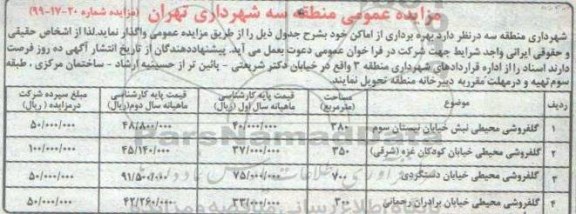 مزایده عمومی منطقه سه شهرداری تهران (مزایده شماره ۲۰-۱۷-۹۹)
شهرداری منطقه سه درنظر دارد بهره برداری از اماکن خود بشرح جدول ذیل را از طریق مزایده عمومی واگذار نماید.لذا از اشخاص حقیقی
و حقوقی ایرانی واجد شرایط جهت شرکت در فراخوان عمومی دعوت بعمل می آید. پیشنهاددهندگان از تاریخ انتشار آگهی ده روز فرصت
دارند اسناد را از اداره قراردادهای شهرداری منطقه ۳ واقع در خیابان دکتر شریعتی - پائین تر از حسینیه ارشاد - ساختمان مرکزی ، طبقه
سوم تهیه و درمهلت مقرر به دبیرخانه منطقه تحویل نمایند.
ردیف موضوع مساحت (مترمربع) قیمت پایه کارشناسی ماهیانه سال اول (ریال) قیمت پایه کارشناسی ماهیانه سال دوم(ریال) مبلغ سپرده شرکت درمزایده (ریال)
۱ گلفروشی محیطی نبش خیابان نیستان سوم ۳۸۰ ۴۰/۰۰۰/۰۰۰ ۴۸/۸۰۰/۰۰۰ ۵۰/۰۰۰/۰۰۰
۲ گلفروشی محیطی خیابان کودکان غزه (شرقی) ۳۵۰ ۳۷/۰۰۰/۰۰۰ ۴۵/۱۴۰/۰۰۰ ۱۰۰/۰۰۰/۰۰۰
۳ گلفروشی محیطی خیابان دستگردی ۷۰۰ ۷۵/۰۰۰/۰۰۰ ۹۱/۵۰۰/۰۰۰ ۵۰/۰۰۰/۰۰۰
۴ گلفروشی محیطی خیابان برادران رحمانی ۳۰۰ ۳۳/۰۰۰/۰۰۰ ۴۲/۲۶۰/۰۰۰ ۵۰/۰۰۰/۰۰۰